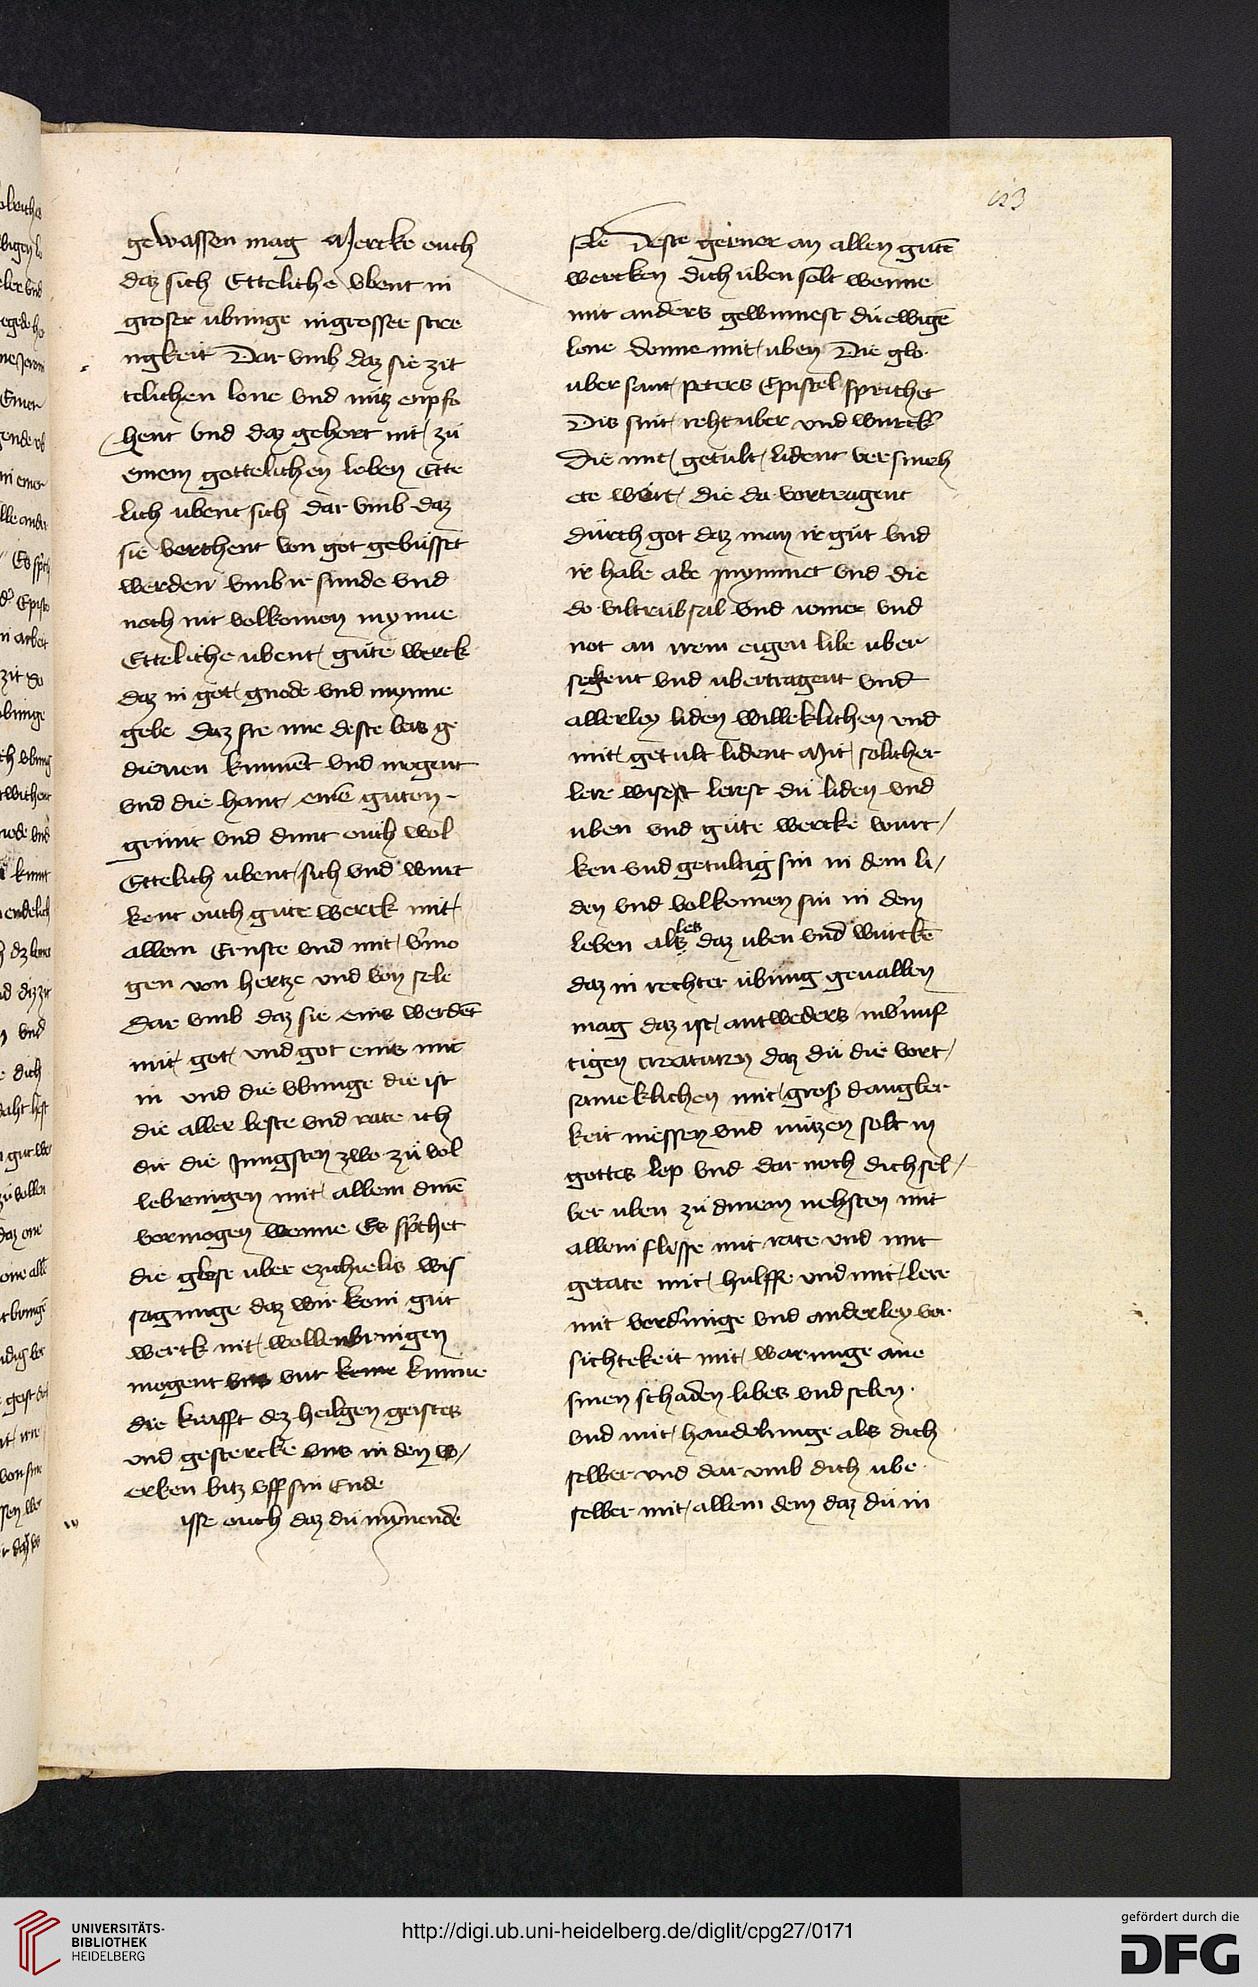 gewassen mag Mercke ouch
daz sich Etteliche vbent in
groser ubunge in grosser stre
ngkeit Dar vmb daz sie zit
telichen lone vnd nutz enpfo
hent vnd daz gehort nit zu
einem gottelichen leben Ette
lich ubent sich dar vmb daz
sie vorchent von got gebusset
werden vmb ir sunde vnd
noch nit volkomen mynne
Etteliche ubent gute werck
daz in got gnode vnd mynne
gebe daz sie ime deste bas ge
dienen kunnēt vnd mogent
vnd die hant einē guten
grunt vnd dunt ouch wol
Ettelich ubent sich vnd wurc
kent ouch gute werck mit
allem Ernste vnd mit v̓mo
gen von hertze vnd von sele
Dar vmb daz sie eins werdēt
mit got vnd got eins mit
in vnd die vbunge die ist
die aller beste vnd rate ich
dir die Jungsten zwo zu vol
lebringen mit allem dinē
vormogen wenne Es sp̓chet
die glose uber ezichielis wis
sagunge daz wir kein gut
werck nit wollenbringen
mogent vns vnr keme kumme
die krafft dez heilgen geistes
vnd gestercke vns in den w
erken bitz vff sin Ende
w isse ouch daz du mȳnende
sele deste gerner an allen gutē
wercken dich uben solt wenne
mit anders gewinnest du ewigē
lone donne mit uben Die glo
uber sant peters Epistel sprichet
Dis sint reht uber vnd wurck̓
die mit getult lident versmeh
ete wort die da vortragent
durch got daz man ir gut vnd
ir habe abe nymmet vnd die
do vil trubsal vnd iomer vnd
not an irem eigen libe uber
setzent vnd ubertragent vnd
allerley liden willeklichen vnd
mit getult lident Mit solicher
lere wisest lerest du liden vnd
uben vnd gute wercke wurc
ken vnd getultig sin in dem li
den vnd volkomen sin in dem
leben alles daz uben vnd wurckē
daz in rechter ubung geuallen
mag daz ist antweders inv̓nuf
tigen creaturen daz du die vort
sameklichen mit groß dangber
keit niessen vnd nutzen solt in
gottes lop vnd dar noch dich sel
ber uben zu dinem nehsten mit
allem flisse mit rate vnd mit
getate mit hulffe vnd mit lere
mit vordinunge vnd anderley vor
sichtekeit mit warnunge ane
sinen schaden libes vnd selen
vnd mit handelunge als dich
selber vnd dar vmb dich ube
selber mit allem dem daz du in
UNIVERSITÄTS-
BIBLIOTHEK
HEIDELBERG
http://digi.ub.uni-heidelberg.de/diglit/cpg27/0171
gefördert durch die
DFG